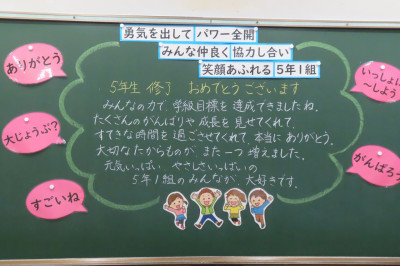 勇気を出して パワー全開
みんな仲良く 協力し合い
笑顔あふれる 5年1組
ありがとう
大じょうぶ?
すごいね
いっしょに
～しよう
がんばろう
5年生 修了 おめでとうございます
みんなの力で、学級目標を達成できましたね。
たくさんのがんばりや成長を見せてくれて、
すてきな時間を過ごさせてくれて、本当にありがとう。
大切なたからものが また一つ増えました。
元気いっぱい やさしさいっぱいの
5年1組のみんなが、大好きです。